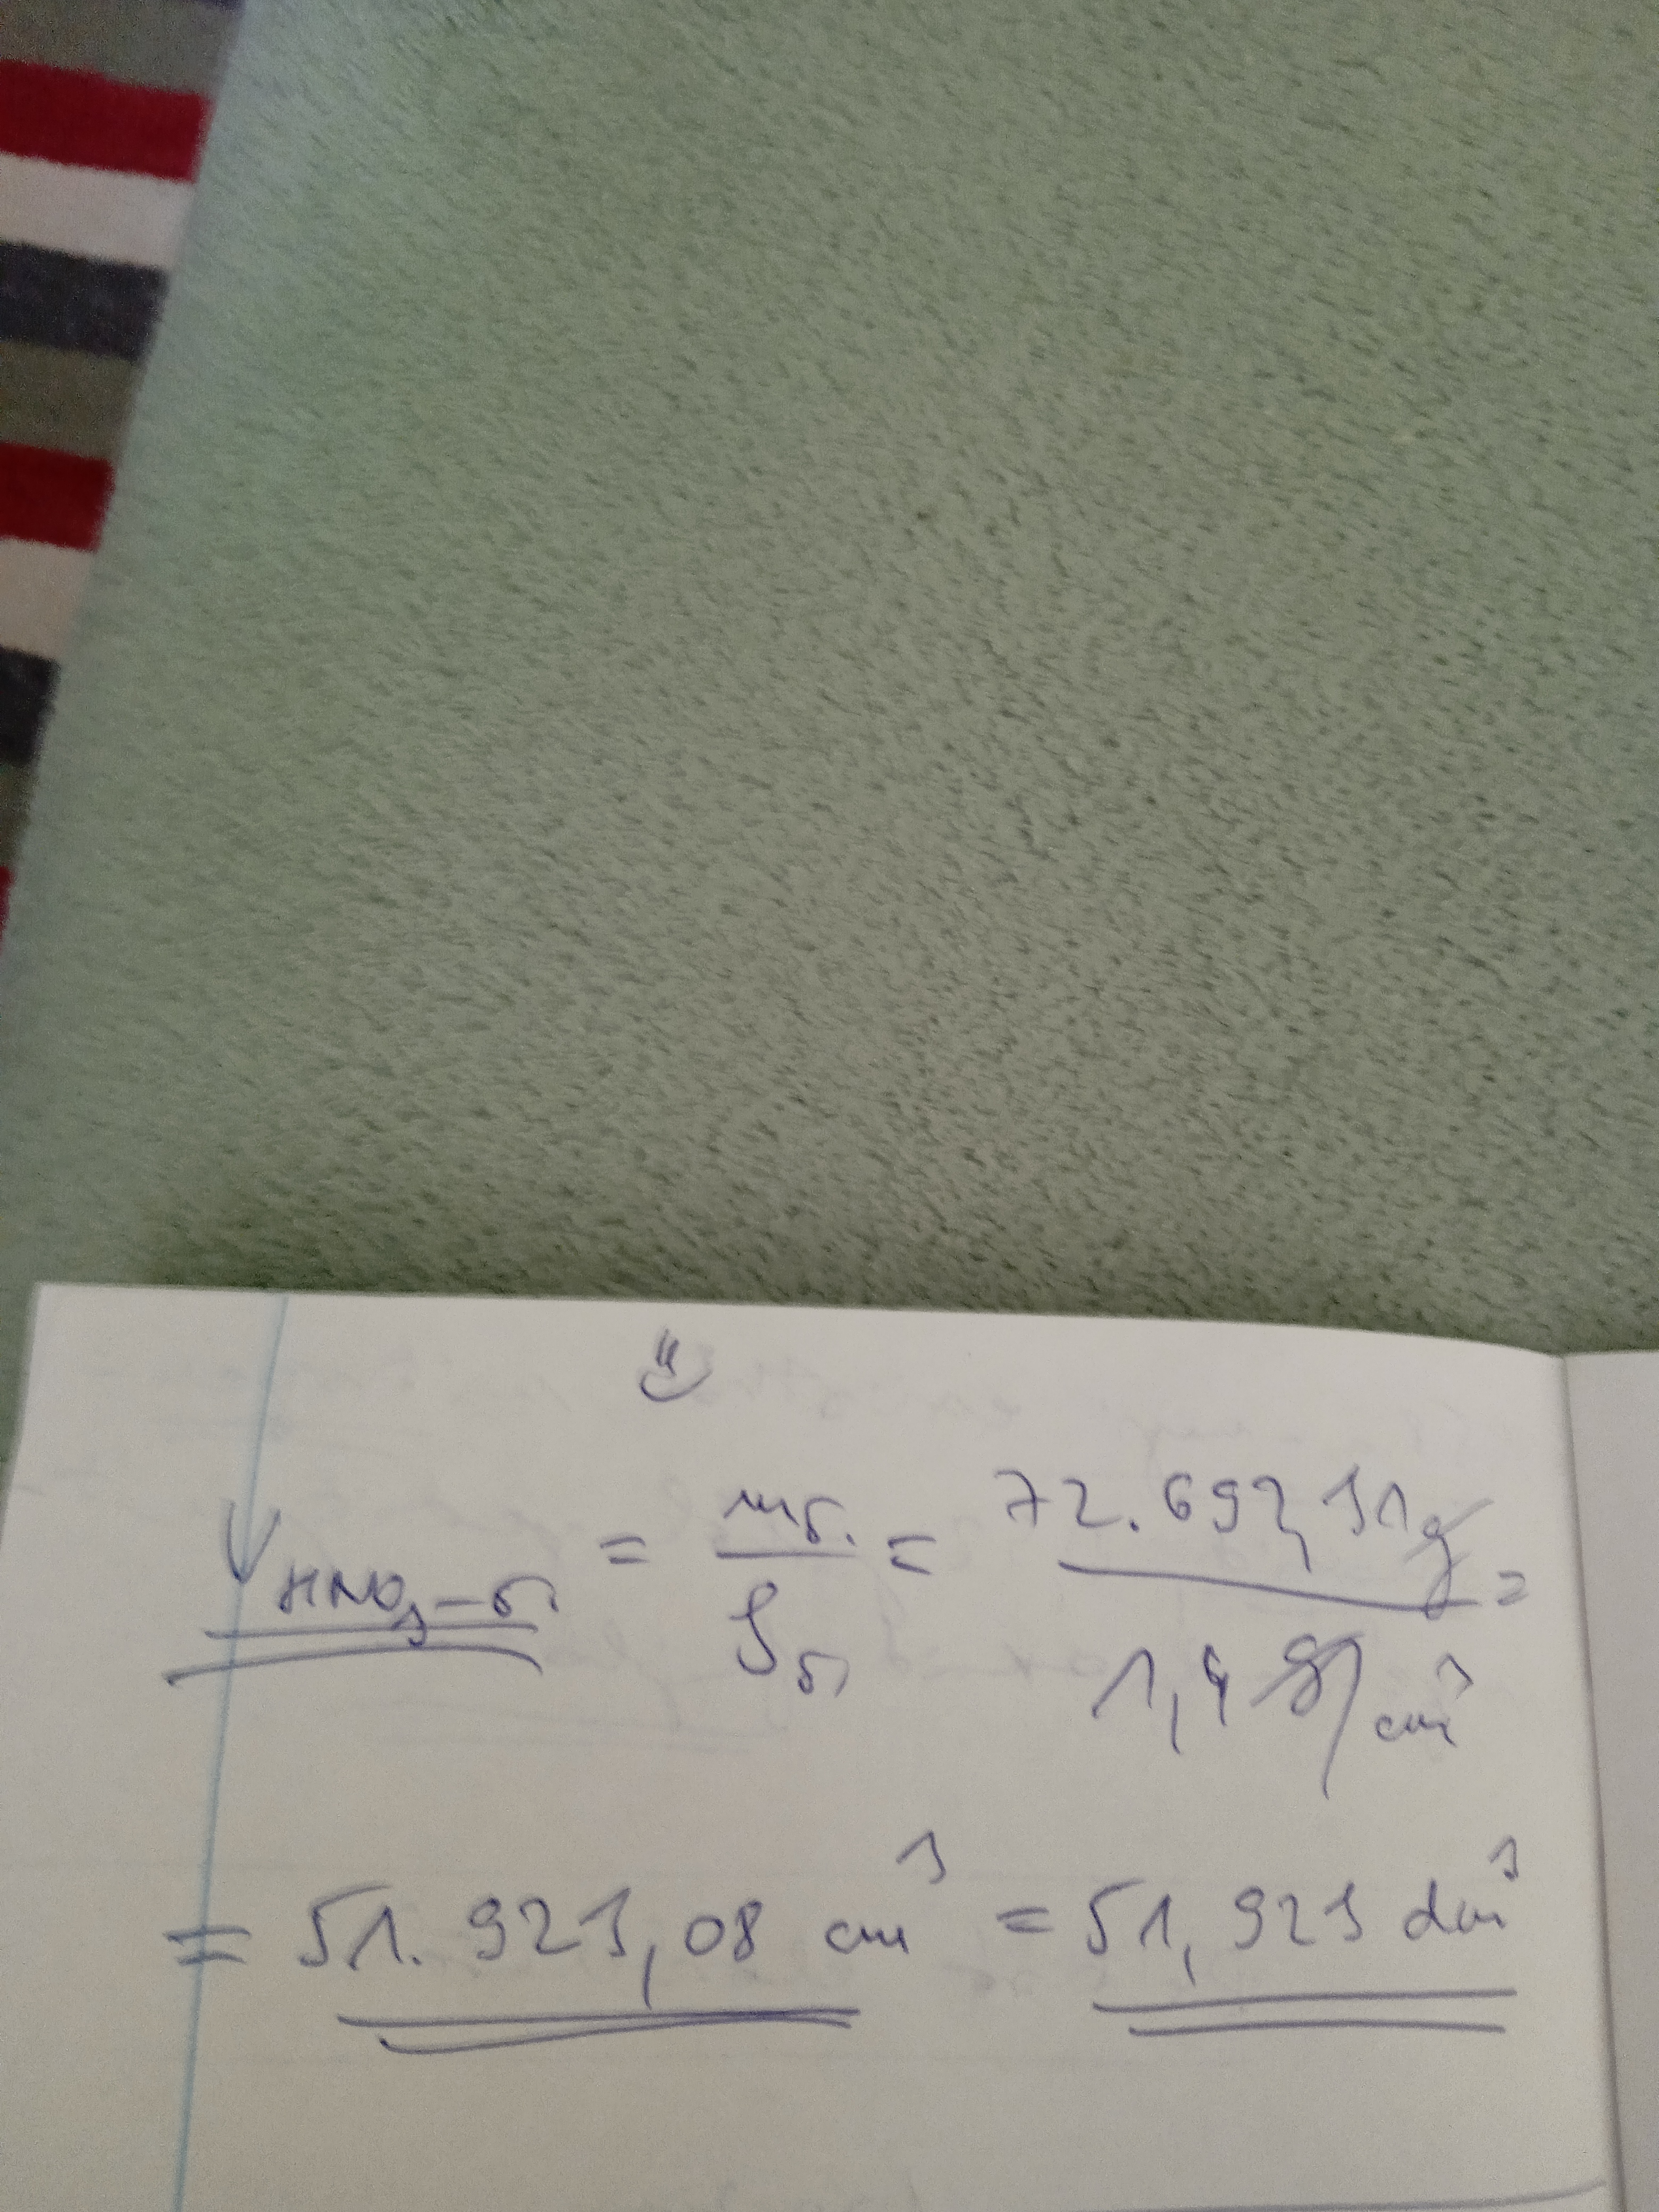 V HNO₃-r. = mr. / ρr. = 72.692,31 g / 1,4 g/cm³ =
= 51.923,08 cm³ = 51,923 dm³